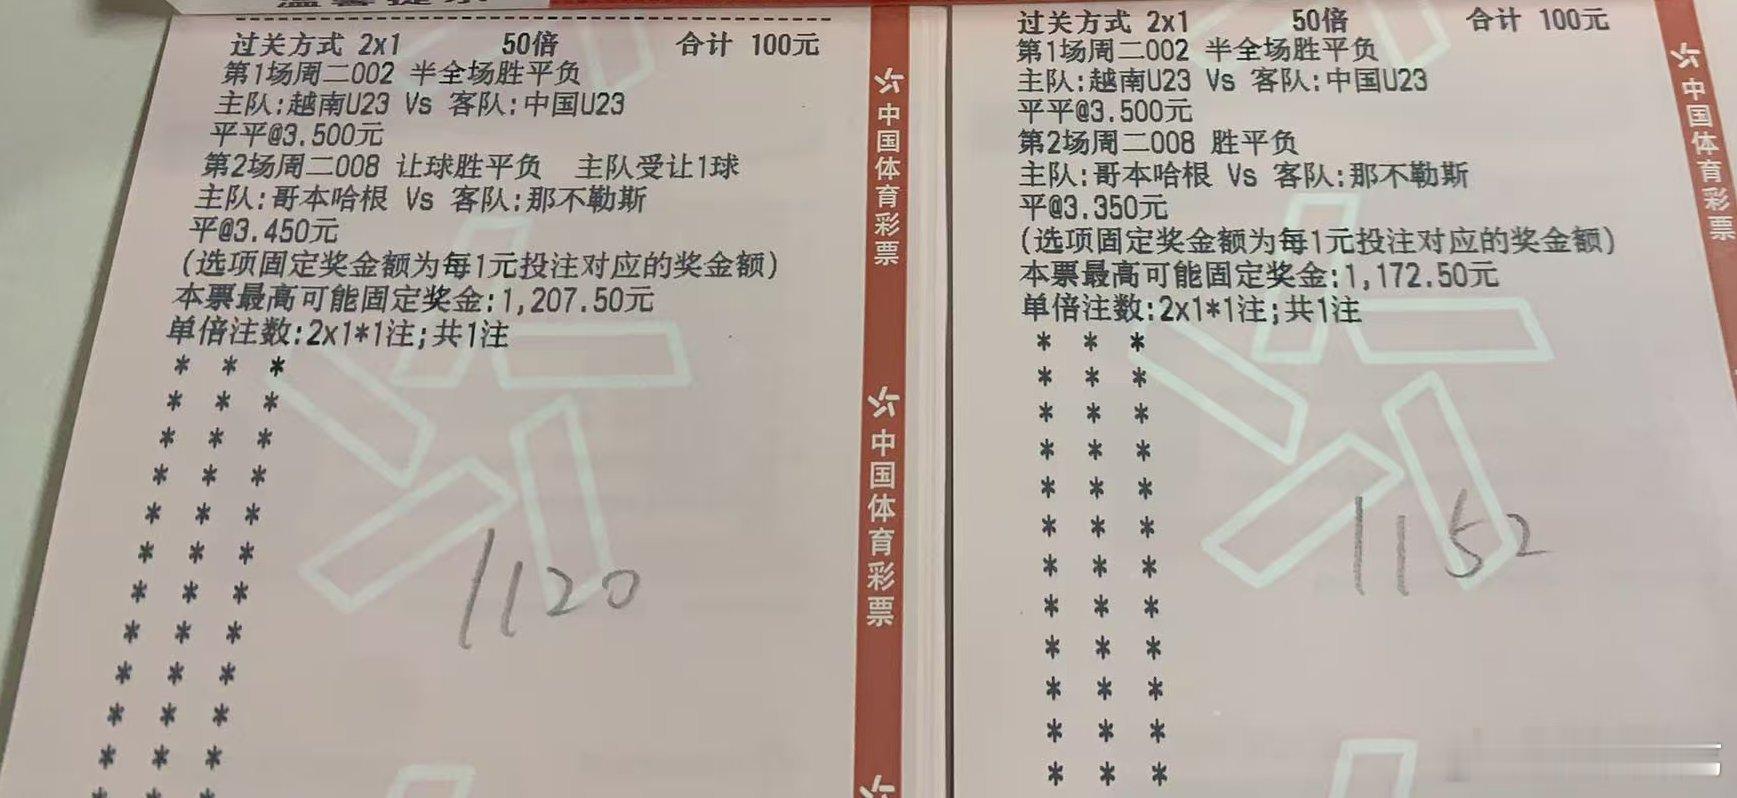 过关方式 2x1 50倍 合计 100元
第1场周二002 半全场胜平负
主队:越南U23 Vs 客队:中国U23
平平@3.500元
第2场周二008 让球胜平负 主队受让1球
主队:哥本哈根 Vs 客队:那不勒斯
平@3.450元
(选项固定奖金额为每1元投注对应的奖金额)
本票最高可能固定奖金:1,207.50元
单倍注数:2x1*1注;共1注
* * *
* * *
* * *
* * *
* * *
* * *
* * *
* * *
* * *
* * *
* * *
* * *
1120
中国体育彩票
中国体育彩票
过关方式 2x1 50倍 合计 100元
第1场周二002 半全场胜平负
主队:越南U23 Vs 客队:中国U23
平平@3.500元
第2场周二008 胜平负
主队:哥本哈根 Vs 客队:那不勒斯
平@3.350元
(选项固定奖金额为每1元投注对应的奖金额)
本票最高可能固定奖金:1,172.50元
单倍注数:2x1*1注;共1注
* * *
* * *
* * *
* * *
* * *
* * *
* * *
* * *
* * *
* * *
* * *
* * *
1152
中国体育彩票